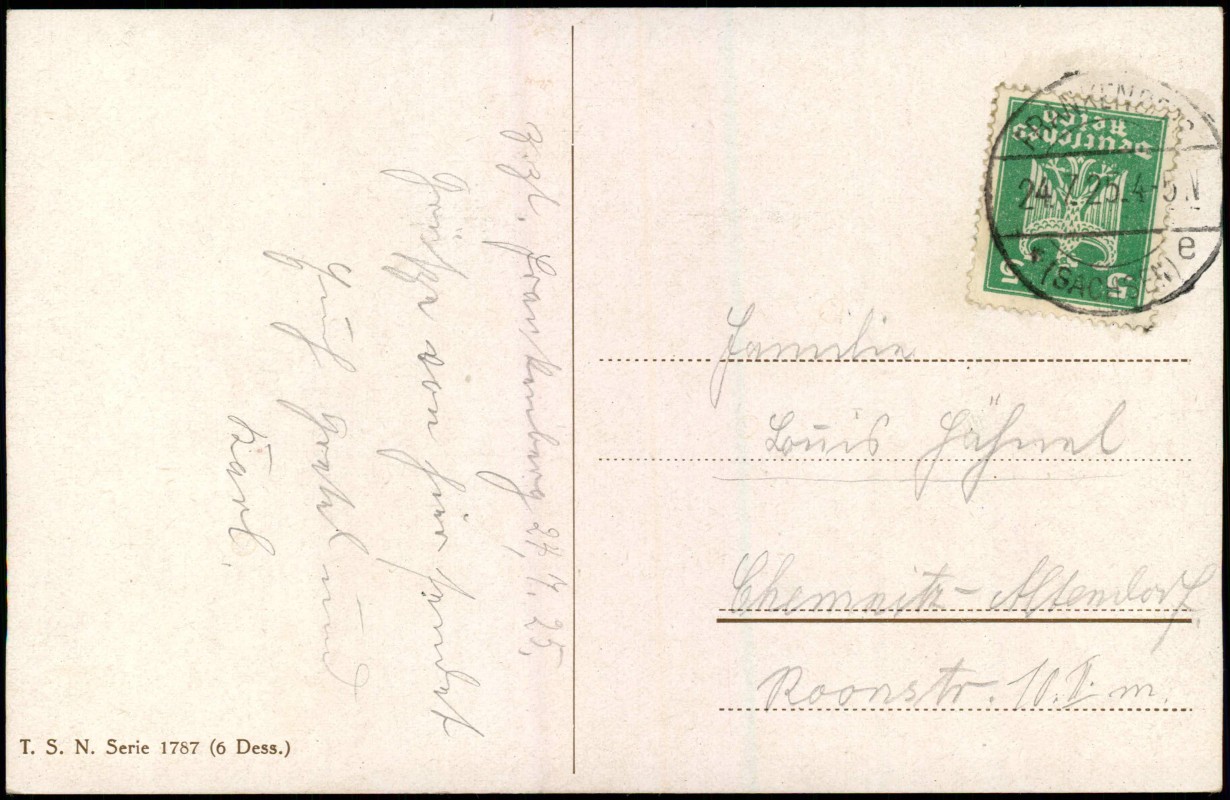 zzt. Frankenberg, 24.7.25.
Grüße von hier sendet
Euch Gretel und
Karl.
T. S. N. Serie 1787 (6 Dess.)
Deutsches
Reich
5 5
FRANKENBERG
24.7.25.4-5N
* (SACHSEN) e
Familie
Louis Hähnel
Chemnitz-Altendorf
Roonstr. 10. II. m.